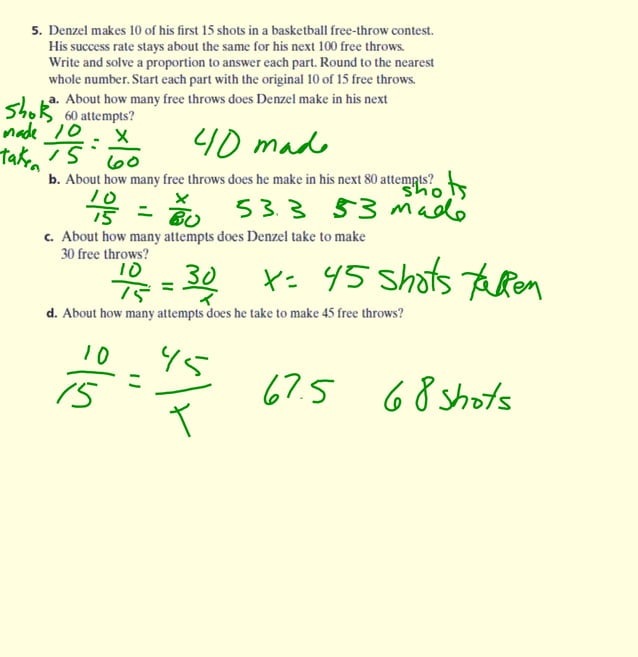 5. Denzel makes 10 of his first 15 shots in a basketball free-throw contest.
His success rate stays about the same for his next 100 free throws.
Write and solve a proportion to answer each part. Round to the nearest
whole number. Start each part with the original 10 of 15 free throws.
a. About how many free throws does Denzel make in his next
60 attempts?
shots
made 10/15 = x/60 40 made
taken
b. About how many free throws does he make in his next 80 attempts?
10/15 = x/80 53.3 53 shots made
c. About how many attempts does Denzel take to make
30 free throws?
10/15 = 30/x x = 45 shots taken
d. About how many attempts does he take to make 45 free throws?
10/15 = 45/x 67.5 68 shots